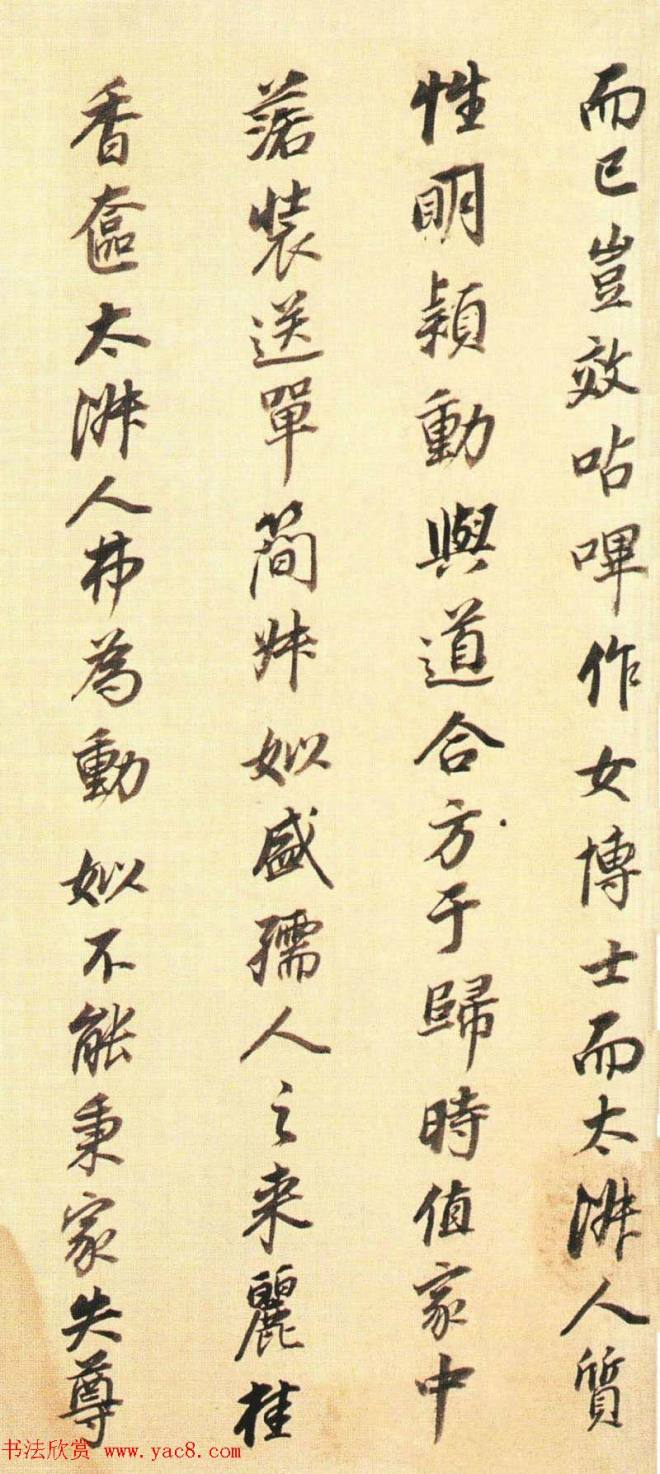 而已豈效呫嗶作女博士而太淑人質
性明穎動與道合方于歸時值家中
落裝送單簡姊姒盛孺人之来麗桂
香奩太淑人弗為動姒不能秉家失尊
书法欣赏 www.yac8.com